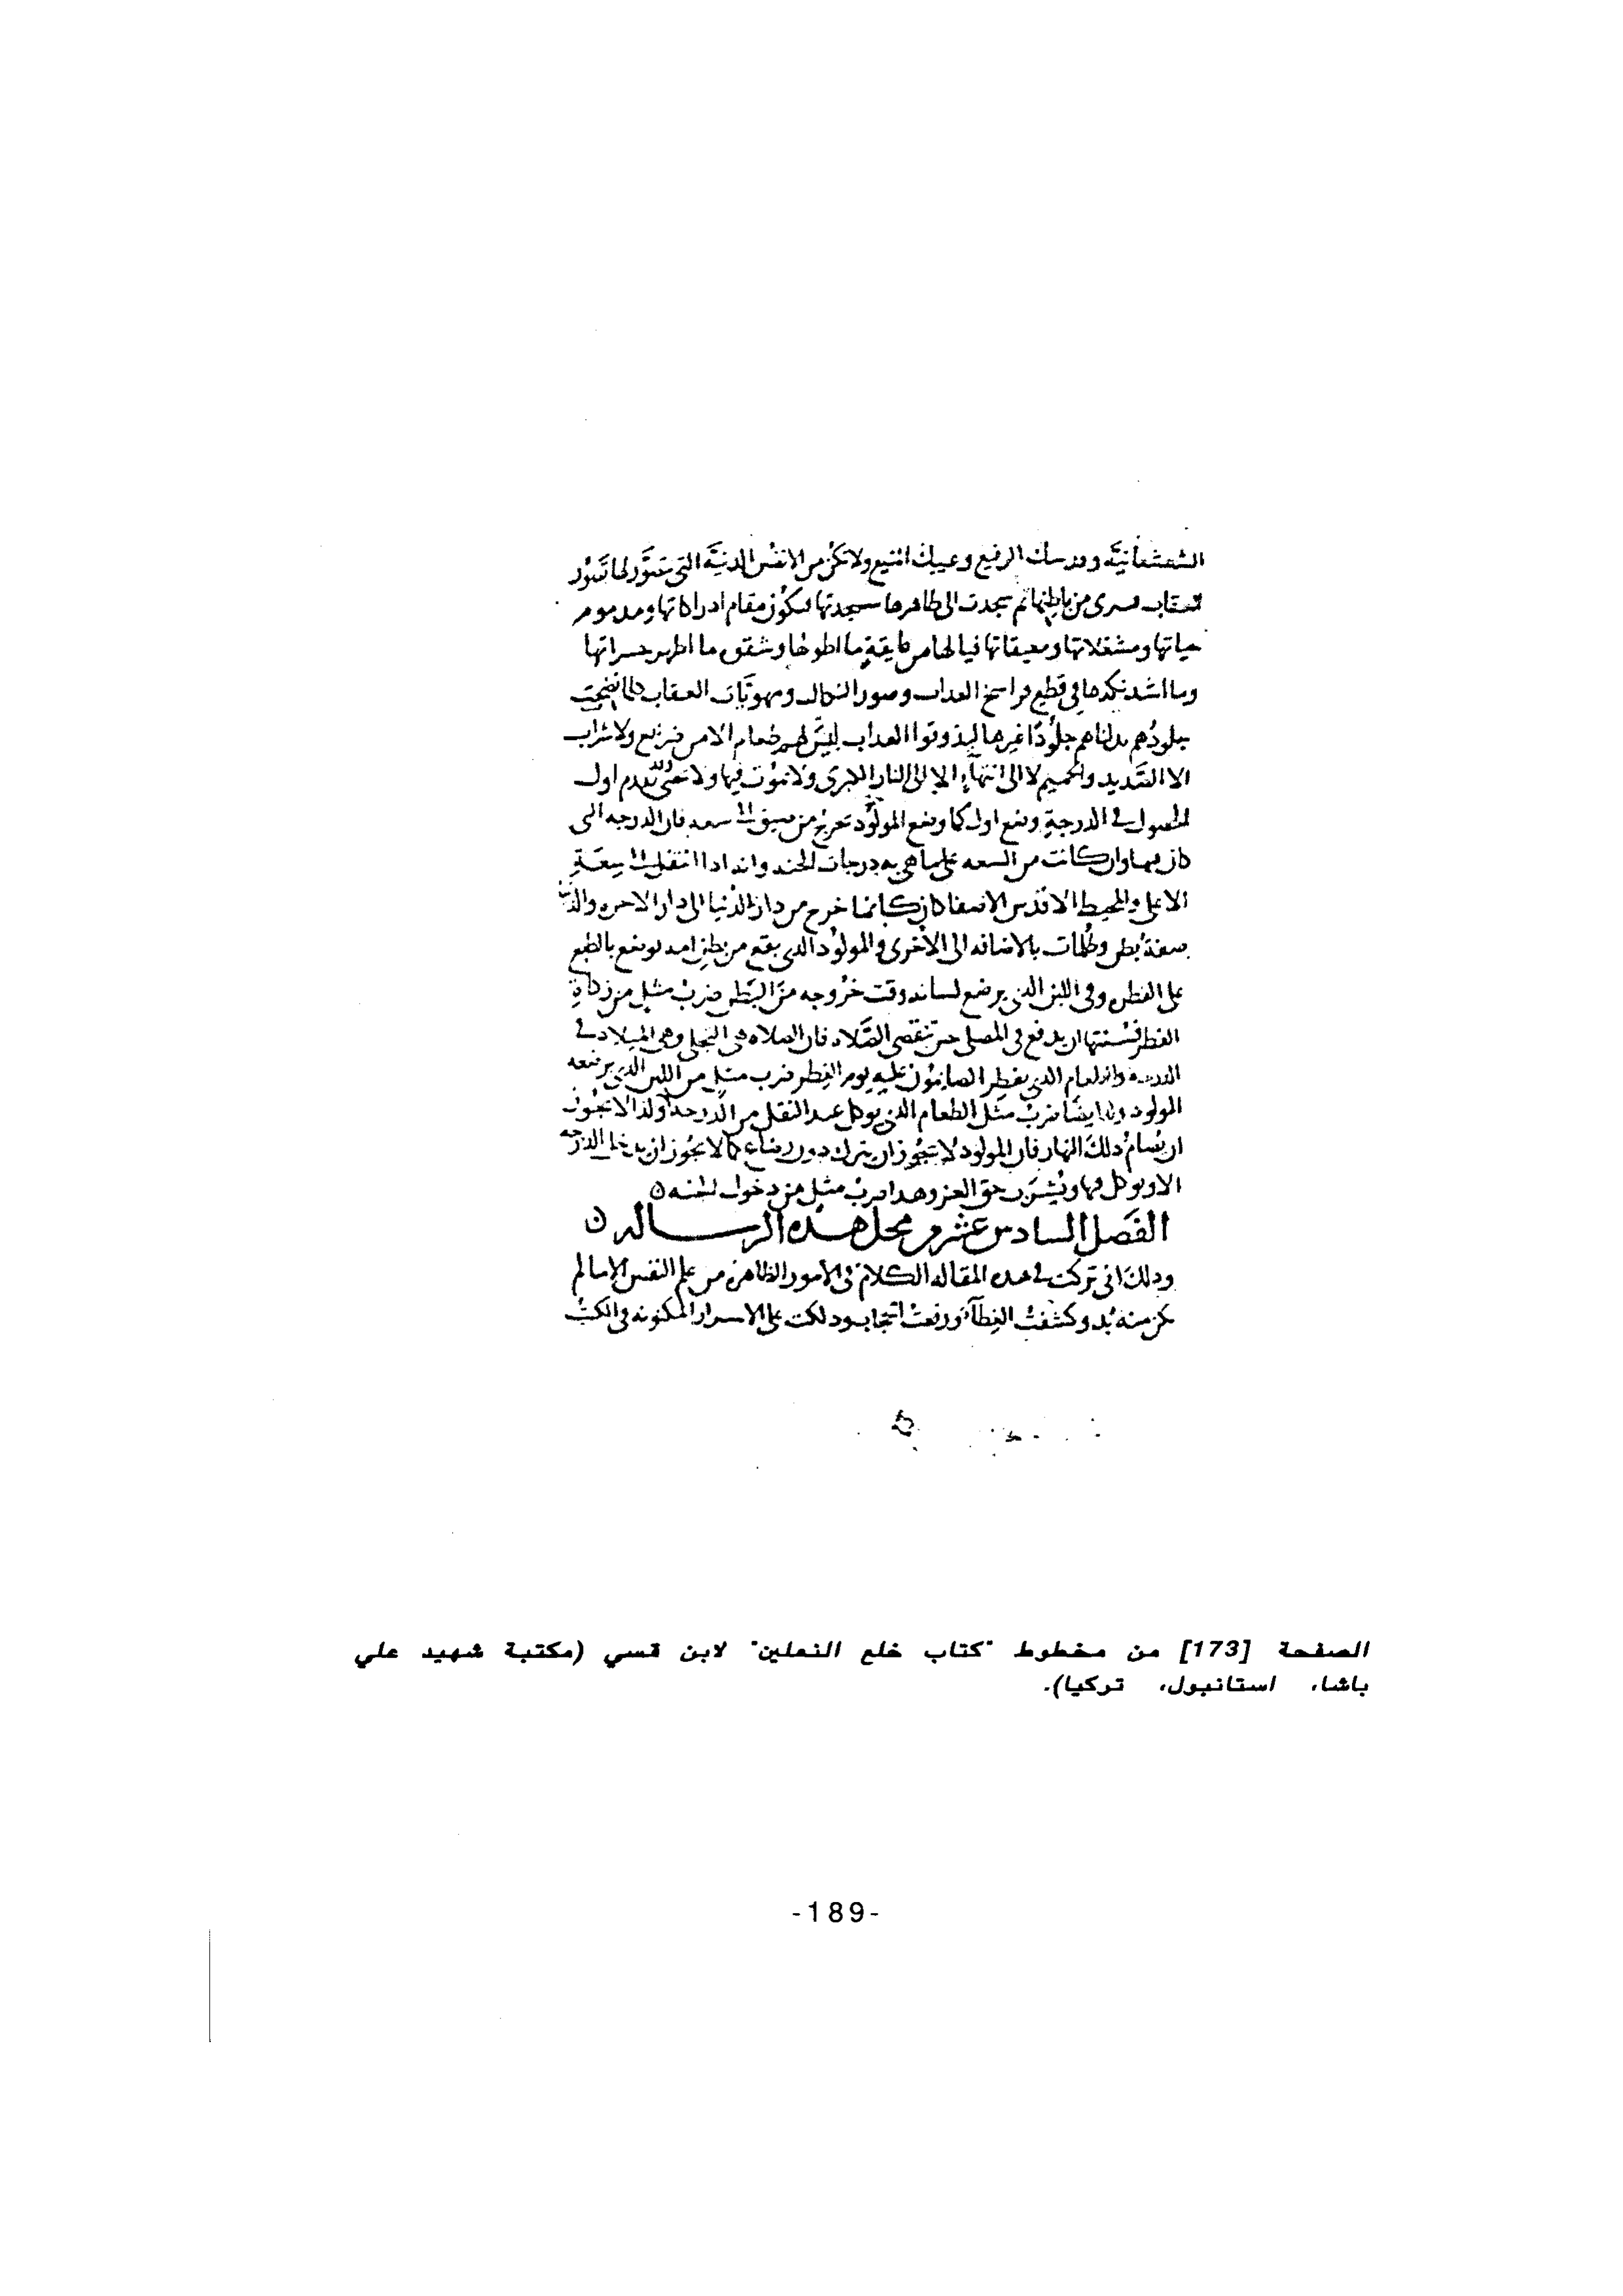 الشعشعانية وقدسك الرفيع وعيبك المنيع ولا تكن من الانفس الدنية التي
من باطنها ثم سجدت الى ظاهرها مقام ادراكاتها ومذموم
حياتها ومشغلاتها ومعيقاتها فيا لها من ما اطولها وشقوى ما اظهر حسراتها
وما اشد نكدها في العذاب وصور النكال ومهويات العقاب كلما نضجت
جلودهم بدلناهم جلودا غيرها ليذوقوا العذاب ليس لهم طعام الا من ضريع ولا شراب
الا الصديد والحميم لا الى انتهاء الا الى النار الكبرى ولا تموت فيها ولا تحيى اول
الحصول في الدرجة وضع اول كما وضع المولود من ضيق الى سعه فان الدرجه التى
كان بها وان كانت من السعه على ما هى به درجات الجنه وانه اذا انتقل الى سعة
الاعلى والمحيط الاقدس كان كانما خرج من دار الدنيا الى دار الاخره
بطن وظلمات بالاضافه الى الاخرى والمولود الذى يقع من بطن امه يوضع بالطبع
على الفطن وفى اللبن الذى يرضع لسانه وقت خروجه من البطن ضرب مثل من زكاة
الفطر فسنتها ان يدفع فى المصلى حتى تنقضى الصلاه فان الصلاه هى التجلى وهى الميلاد فى
الدرجة والطعام الذى يفطر الصائمون عليه يوم الفطر ضرب مثل من اللبن الذى يرضعه
المولود وايضا ضرب مثل الطعام الذى يوكل عند النقل من الدرجة ولذا لا يجوز
ان يصام ذلك النهار فان المولود لا يجوز ان يترك دون رضاع كما لا يجوز ان يدخل الدرجه
الا ويوكل فيها ويشرب حق العز وهذا ضرب مثل من دخول الجنه ن
الفصل السادس عشر من محل هذه الرساله ن
وذلك انى تركت فى هذه المقاله الكلام فى الامور الظاهره من علم النفس الا ما لم
يكن منه بد وكشفت الغطاء ورفعت الحجاب ودلكت على الاسرار المكنونه فى الكتب
الصفحة [173] من مخطوط "كتاب خلع النعلين" لابن قسي (مكتبة شهيد علي
باشا، استانبول، تركيا).
-189-